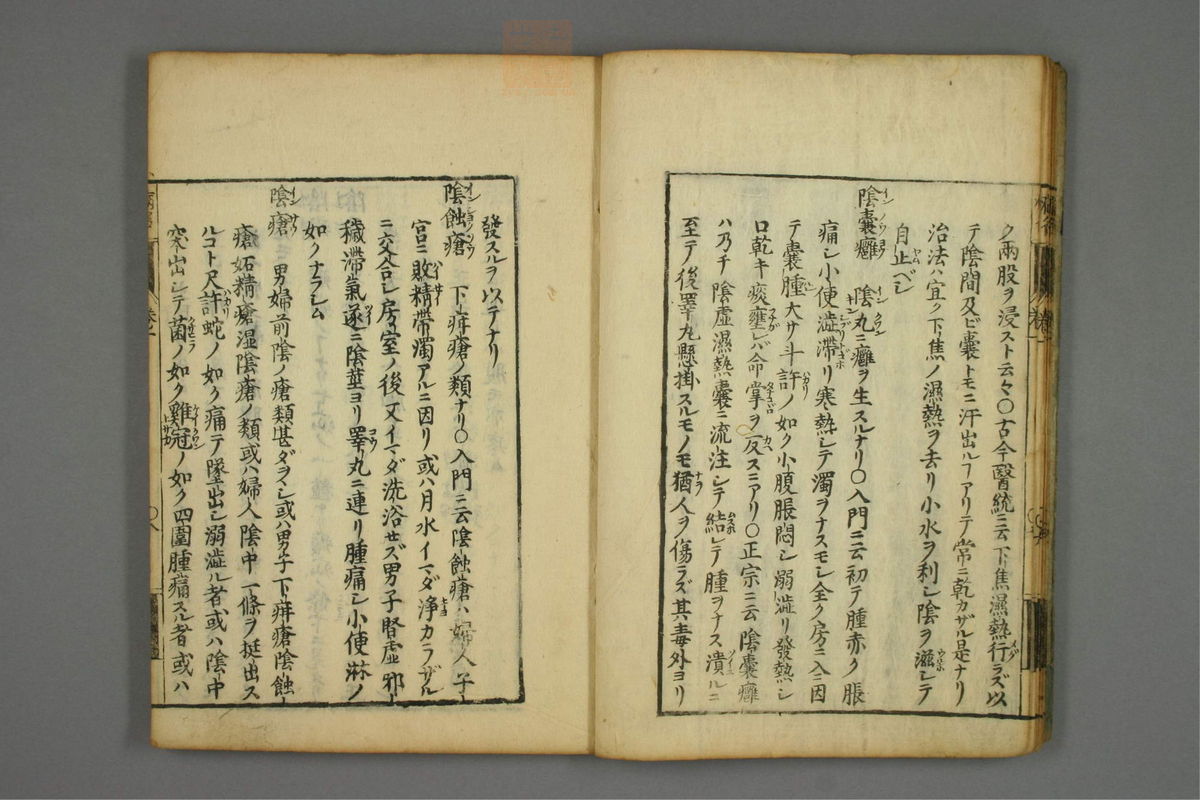 ク兩股ヲ浸スト云々〇古今醫統ニ云下焦濕熱行ラズ以
テ陰間及ビ囊トモニ汗出ルフアリテ常ニ乾カザル是ナリ
治法ハ宜ク下焦ノ濕熱ヲ去リ小水ヲ利シ陰ヲ滋シテ
自止ベシ
陰囊癰 陰丸ニ癰ヲ生スルナリ〇入門ニ云初テ腫赤ク脹
痛シ小便澁滯リ寒熱シテ濁ヲナスモシ全ク房ニ入ニ因
テ囊腫大サ斗許ノ如ク小腹脹悶シ溺澁リ發熱シ
口乾キ痰壅レバ命掌ヲ反スニアリ〇正宗ニ云陰囊癰
ハ乃チ陰虛濕熱囊ニ流注シテ結レテ腫ヲナス潰ルニ
至テ後睪丸懸掛スルモノモ猶人ヲ傷ラズ其毒外ヨリ
發スルヲ以テナリ
陰蝕瘡 下疳瘡ノ類ナリ〇入門ニ云陰蝕瘡ハ婦人子
宮ニ敗精帶濁アルニ因リ或ハ月水イマダ淨カラザル
ニ交合シ房室ノ後又イマダ洗浴セズ男子腎虛邪
穢滯氣遂ニ陰莖ヨリ睪丸ニ連リ腫痛シ小便淋ノ
如クナラシム
陰瘡 男婦前陰ノ瘡類甚ダヲヽシ或ハ男子下疳瘡陰蝕
瘡妬精瘡湿陰瘡ノ類或ハ婦人陰中一條ヲ挺出ス
ルコト尺許蛇ノ如ク痛テ墜出シ溺澁ル者或ハ陰中
突出シテ菌ノ如ク雞冠ノ如ク四圍腫痛スル者或ハ